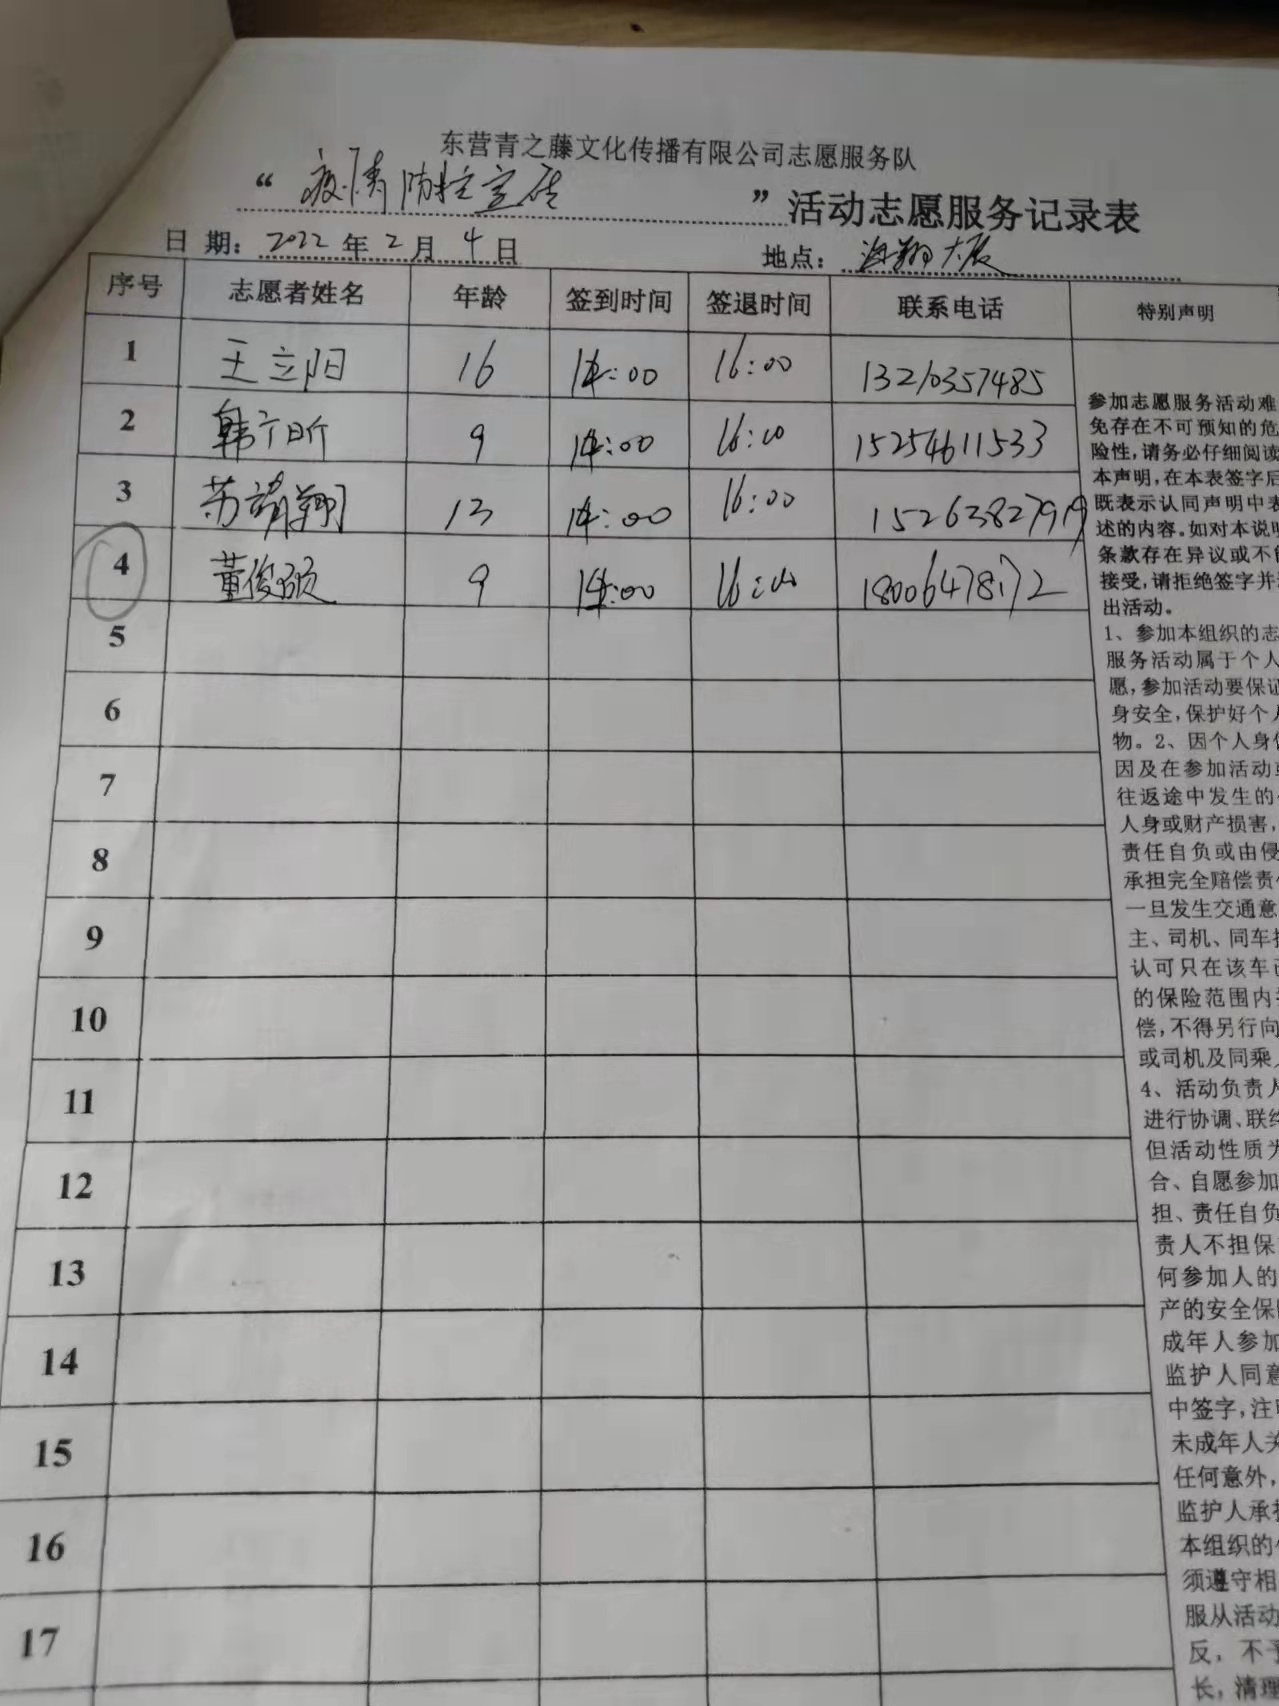 东营青之藤文化传播有限公司志愿服务队
“疫情防控宣传”活动志愿服务记录表
日 期：2022年2月4日 地点：海翔大厦
序号 志愿者姓名 年龄 签到时间 签退时间 联系电话 特别声明
1 王立阳 16 14:00 16:00 13210357485
2 韩 昕 9 14:00 16:00 15254611533
3 苏靖翔 13 14:00 16:00 15263827919
4 董俊硕 9 14:00 16:00 18006478172
5
6
7
8
9
10
11
12
13
14
15
16
17
参加志愿服务活动难
免存在不可预知的危
险性，请务必仔细阅读
本声明，在本表签字后
既表示认同声明中表
述的内容。如对本说明
条款存在异议或不能
接受，请拒绝签字并退
出活动。
1、参加本组织的志
服务活动属于个人
愿，参加活动要保证
身安全，保护好个人
物。2、因个人身体
因及在参加活动或
往返途中发生的
人身或财产损害，
责任自负或由侵
承担完全赔偿责任
一旦发生交通意
主、司机、同车
认可只在该车
的保险范围内
偿，不得另行向
或司机及同乘人
4、活动负责人
进行协调、联络
但活动性质为
合、自愿参加
担、责任自负
责人不担保
何参加人的
产的安全保
成年人参加
监护人同意
中签字，注
未成年人
任何意外，
监护人承
本组织的
须遵守相
服从活动
反，不予
长，清理